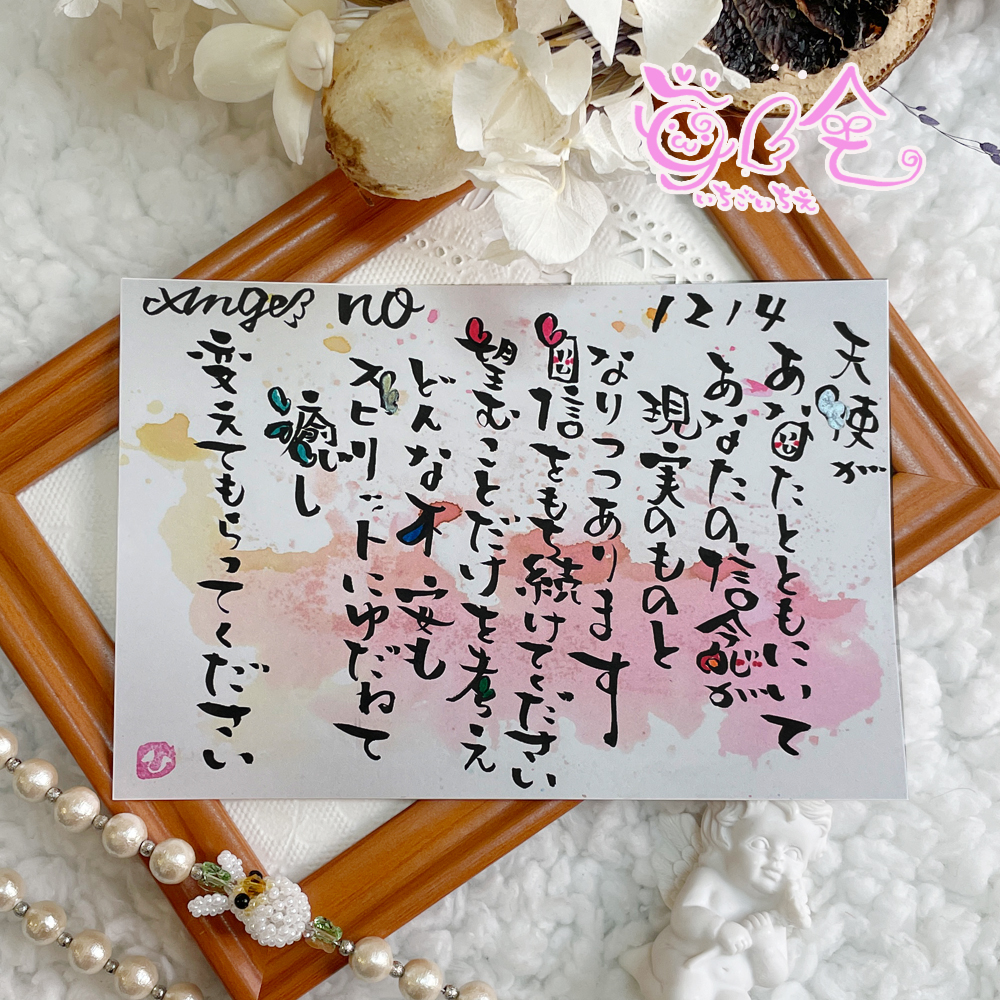 Angel no 1214
天使が
あなたとともにいて
あなたの信念が
現実のものと
なりつつあります
自信をもち続けてください
望むことだけを考え
どんな不安も
スピリットにゆだねて
癒し
変えてもらってください
いちごいちえ